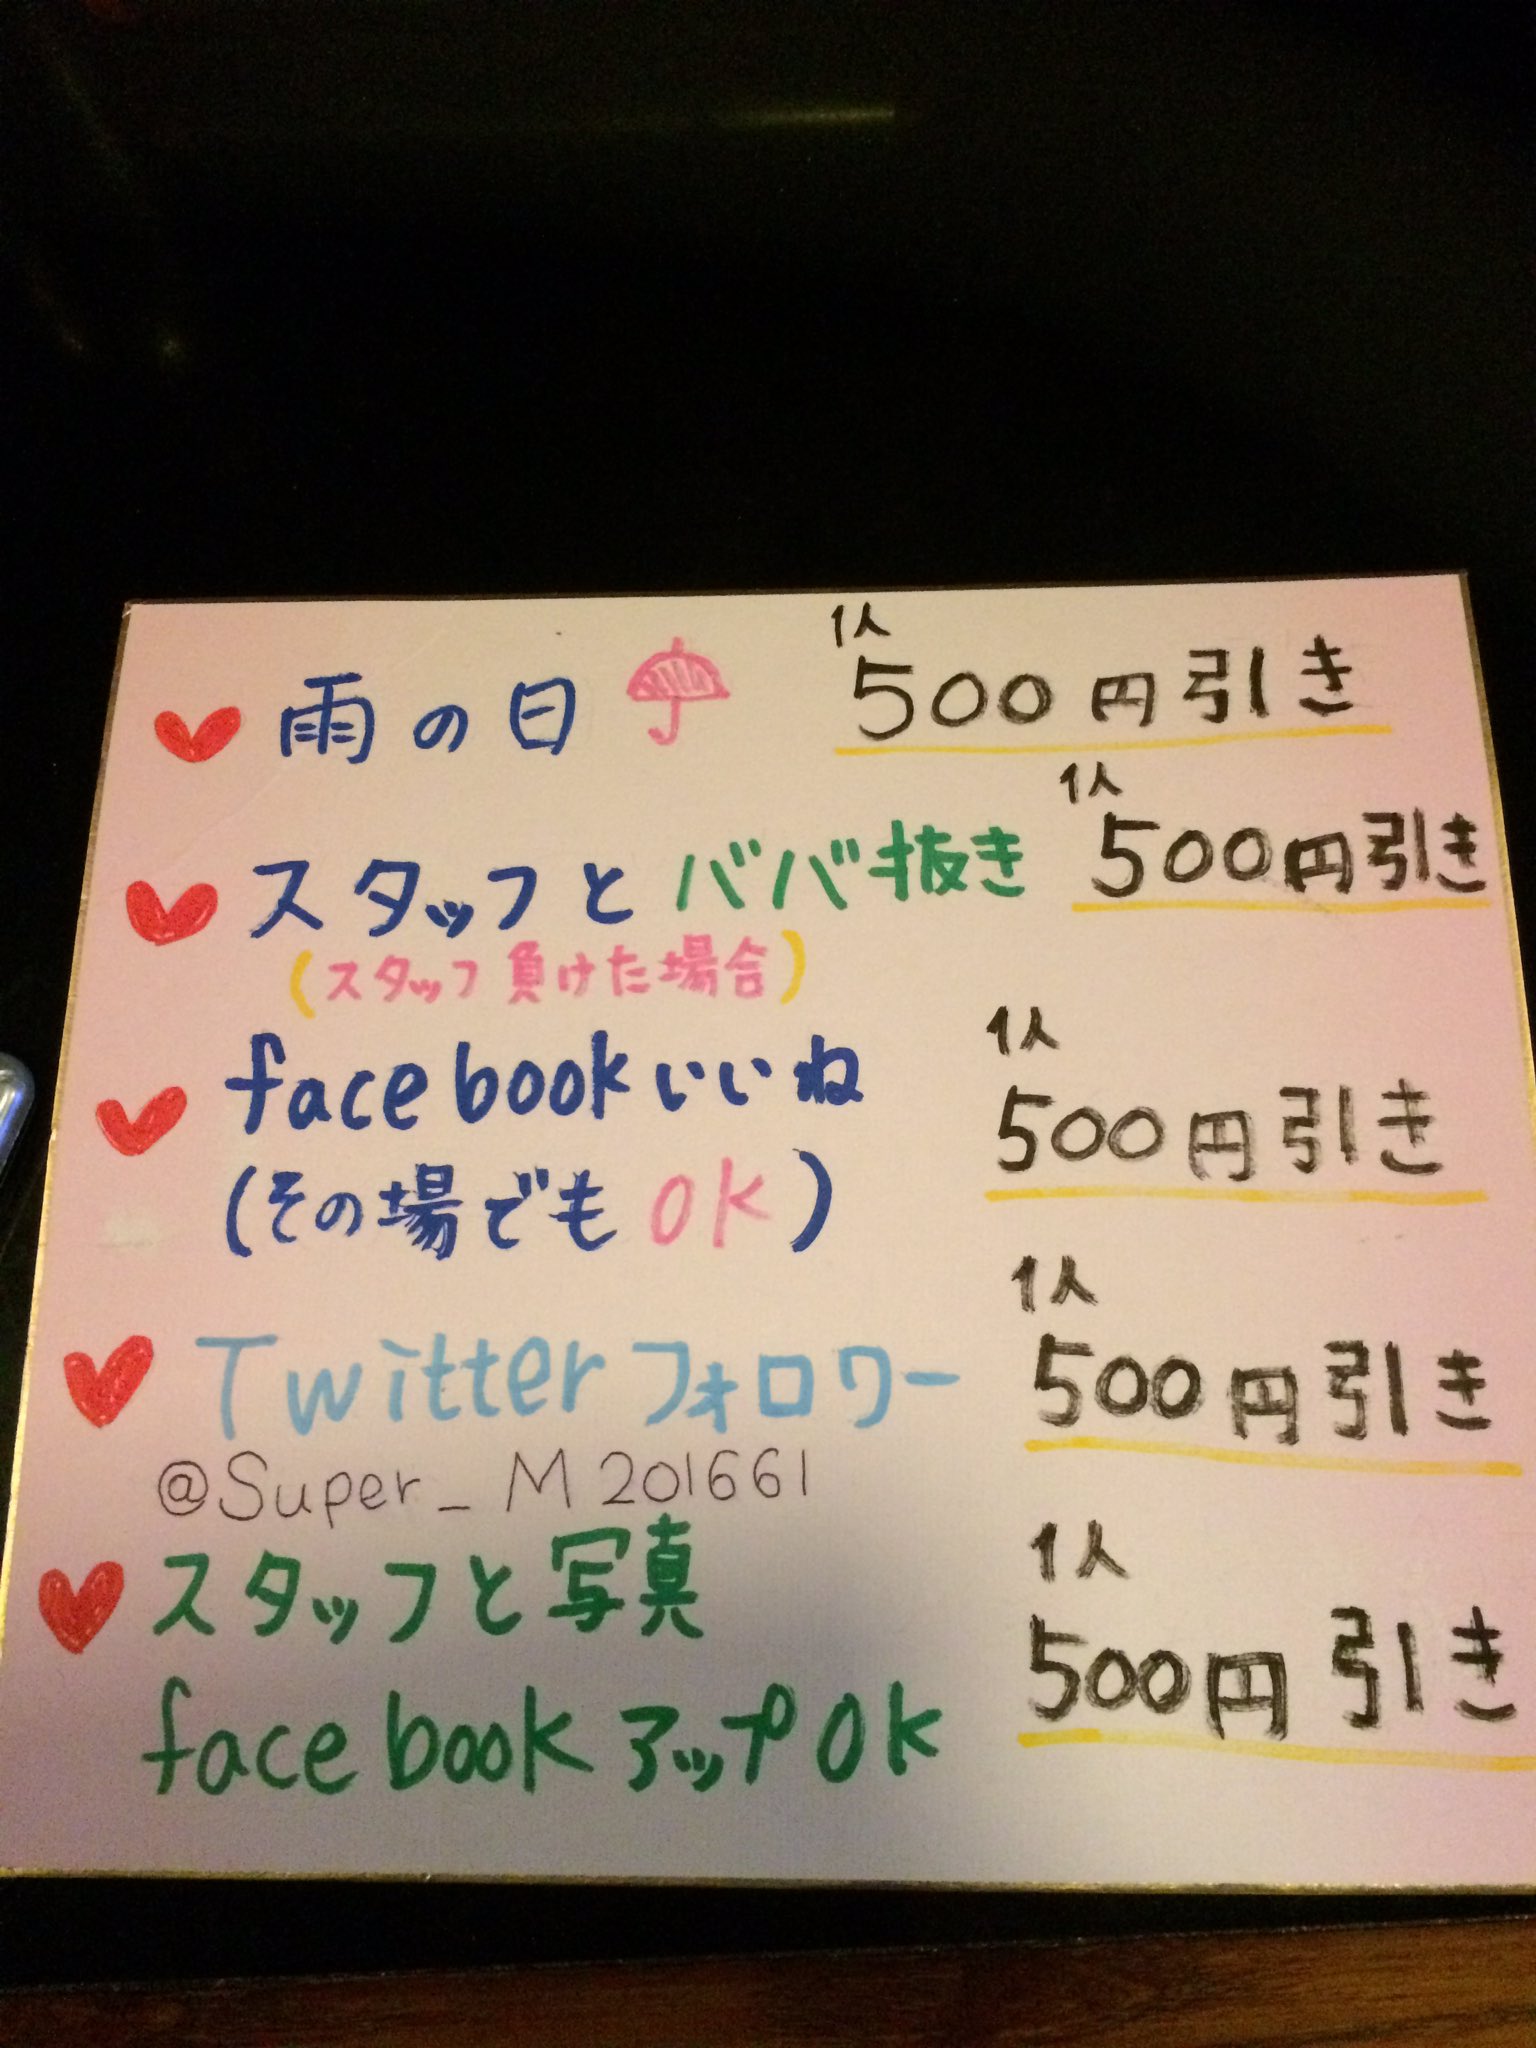 雨の日 1人 500円引き
スタッフとババ抜き 1人 500円引き
(スタッフ負けた場合)
facebookいいね 1人
(その場でもOK) 500円引き
Twitterフォロワー 1人 500円引き
@Super_M201661
スタッフと写真 1人
facebookアップOK 500円引き